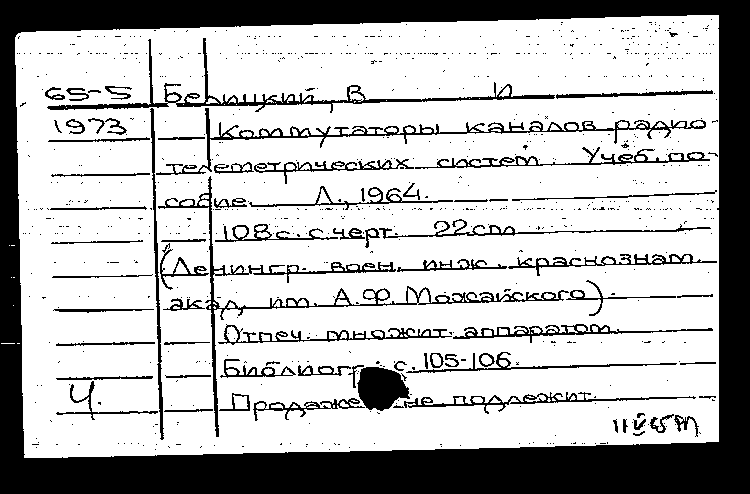 65-5 Белицкий, В И
1973 Коммутаторы каналов радио-
телеметрических систем. Учеб. по-
собие. Л., 1964.
108 с. с черт. 22 см
(Ленингр. воен. инж. краснознам.
акад. им. А.Ф. Можайского).
Отпеч. множит. аппаратом.
Библиогр.: с. 105-106.
Ч. Продаже не подлежит.